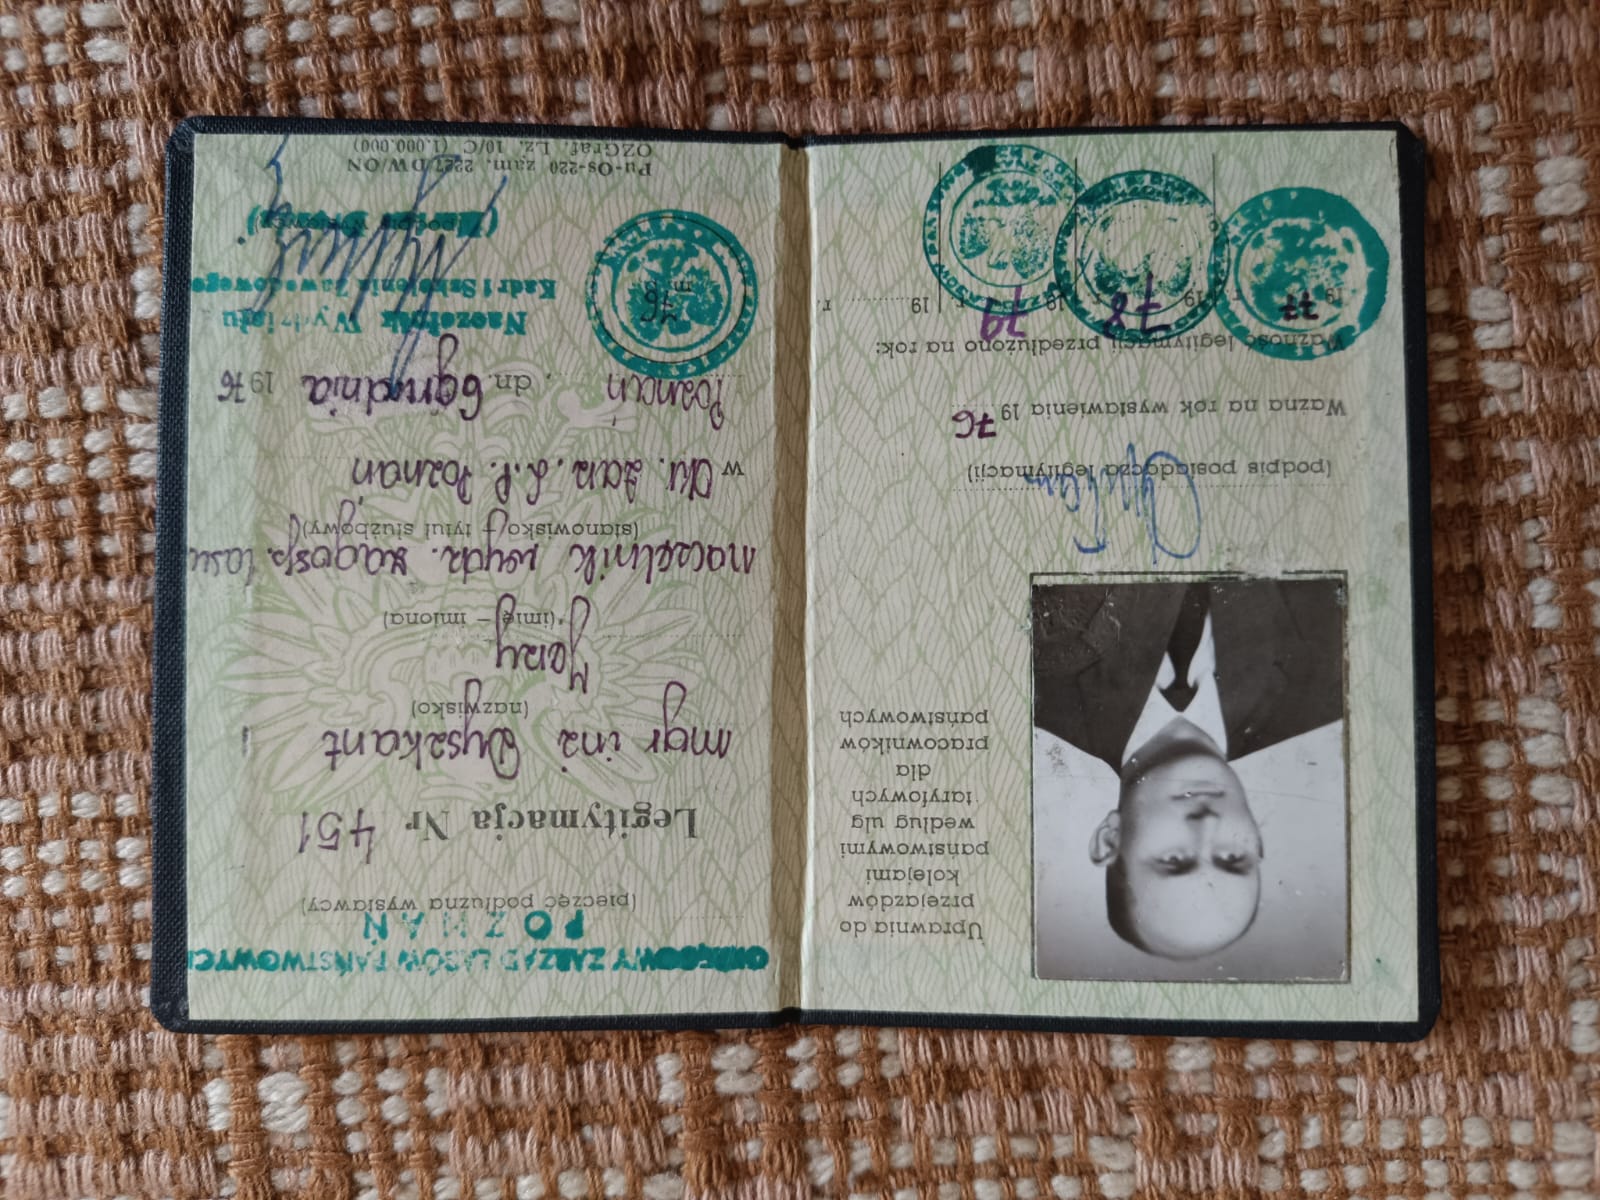 Uprawnia do
przejazdów
kolejami
państwowymi
według ulg
taryfowych
dla
pracowników
państwowych
(podpis posiadacza legitymacji)
Ważna na rok wystawienia 19 76
Ważność legitymacji przedłużono na rok:
19 77 r. 19 78 r. 19 79 r. 19 r.
OKRĘGOWY ZARZĄD LASÓW PAŃSTWOWYCH
POZNAŃ
(pieczęć podłużna wystawcy)
Legitymacja Nr 451
mgr inż Dyszkant
(nazwisko)
Jerzy
(imię – imiona)
naczelnik wydz. zagosp. lasu
(stanowisko – tytuł służbowy)
w Okr. Zarz. L.P. Poznań
Poznań, dn. 6 grudnia 1976
Naczelnik Wydziału
Kadr i Szkolenia Zawodowego
76
m.
Pu-Os-220 zam. 2227/DW/ON
OZGraf. Lz. 10/C (1.000.000)